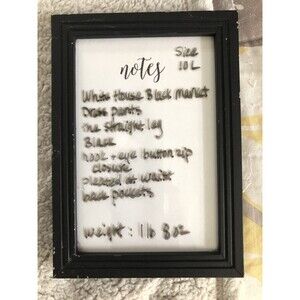 notes
Size
10 L
White House Black Market
Dress pants
the straight leg
Black
hook + eye button zip
closure
pleated at waist
back pockets
weight: 1 lb 8 oz